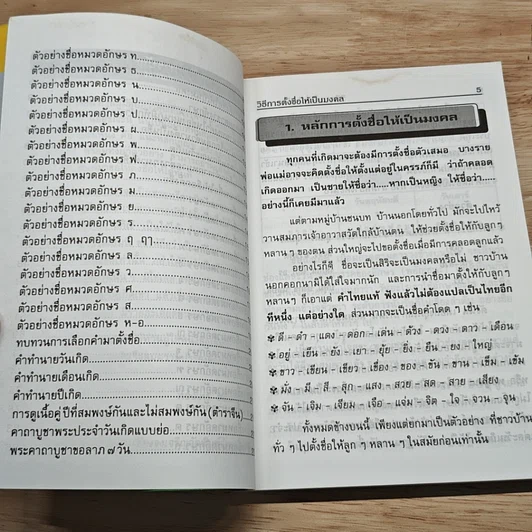 ตัวอย่างชื่อหมวดอักษร ท
ตัวอย่างชื่อหมวดอักษร ธ
ตัวอย่างชื่อหมวดอักษร น
ตัวอย่างชื่อหมวดอักษร บ
ตัวอย่างชื่อหมวดอักษร ป
ตัวอย่างชื่อหมวดอักษร ผ
ตัวอย่างชื่อหมวดอักษร พ
ตัวอย่างชื่อหมวดอักษร ฟ
ตัวอย่างชื่อหมวดอักษร ภ
ตัวอย่างชื่อหมวดอักษร ม
ตัวอย่างชื่อหมวดอักษร ย
ตัวอย่างชื่อหมวดอักษร ร
ตัวอย่างชื่อหมวดอักษร ฤ ฤๅ
ตัวอย่างชื่อหมวดอักษร ล
ตัวอย่างชื่อหมวดอักษร ว
ตัวอย่างชื่อหมวดอักษร ศ
ตัวอย่างชื่อหมวดอักษร ส
ตัวอย่างชื่อหมวดอักษร ห-อ
ทบทวนการเลือกคำมาตั้งชื่อ
คำทำนายวันเกิด
คำทำนายเดือนเกิด
คำทำนายปีเกิด
การดูเนื้อคู่ ปีที่สมพงษ์กันและไม่สมพงษ์กัน (ตำราจีน)
คาถาบูชาพระประจำวันเกิดแบบย่อ
พระคาถาบูชาขอลาภ ๗ วัน
วิธีการตั้งชื่อให้เป็นมงคล 5
1. หลักการตั้งชื่อให้เป็นมงคล
ทุกคนที่เกิดมาจะต้องมีการตั้งชื่อตัวเสมอ บางราย
พ่อแม่อาจจะคิดตั้งชื่อให้ตั้งแต่อยู่ในครรภ์ก็มี ว่าถ้าคลอด
เกิดออกมา เป็นชายให้ชื่อว่า.....หากเป็นหญิง ให้ชื่อว่า.....
อย่างนี้ก็เคยมีมาแล้ว
แต่ตามหมู่บ้านชนบท บ้านนอกโดยทั่วไป มักจะไปไหว้
วานสมภารเจ้าอาวาสวัดใกล้บ้านตน ให้ช่วยตั้งชื่อให้กับลูก ๆ
หลาน ๆ ของตน ส่วนใหญ่จะไปขอตั้งชื่อเมื่อมีการคลอดลูกแล้ว
อย่างไรก็ดี ชื่อจะเป็นสิริจะเป็นมงคลหรือไม่ ชาวบ้าน
นอกคอกนามิได้ใส่ใจมากนัก และการนำชื่อมาตั้งให้กับลูก ๆ
หลานๆ ก็เอาแต่ คำไทยแท้ ฟังแล้วไม่ต้องแปลเป็นไทยอีก
ทีหนึ่ง แต่อย่างใด ส่วนมากจะเป็นชื่อคำโดด ๆ เช่น
✾ ดี - ดำ - แดง - ดอก - เด่น - ด้วง - ดวง - ดาว - เดือน
✾ อยู่ - เย็น - ยัง - เยา - ยุ้ย - ยิ่ง - ยืน - ยง - ใหญ่
✾ ขาว - เขียน - เขียว - เขื่อง - ของ - ขัน - ขาน - เข็ม - เข้ม
✾ มั่ง - มี - สี - สุก - แสง - สวย - สด - สาย - เสียง
✾ จัน - เจิม - เจียม - เจือ - แจ่ม - จิต - ใจ - จวน - จุน
ทั้งหมดข้างบนนี้ เพียงแต่ยกมาเป็นตัวอย่าง ที่ชาวบ้าน
ทั่ว ๆ ไปตั้งชื่อให้ลูก ๆ หลาน ๆ ในสมัยก่อนเท่านั้น